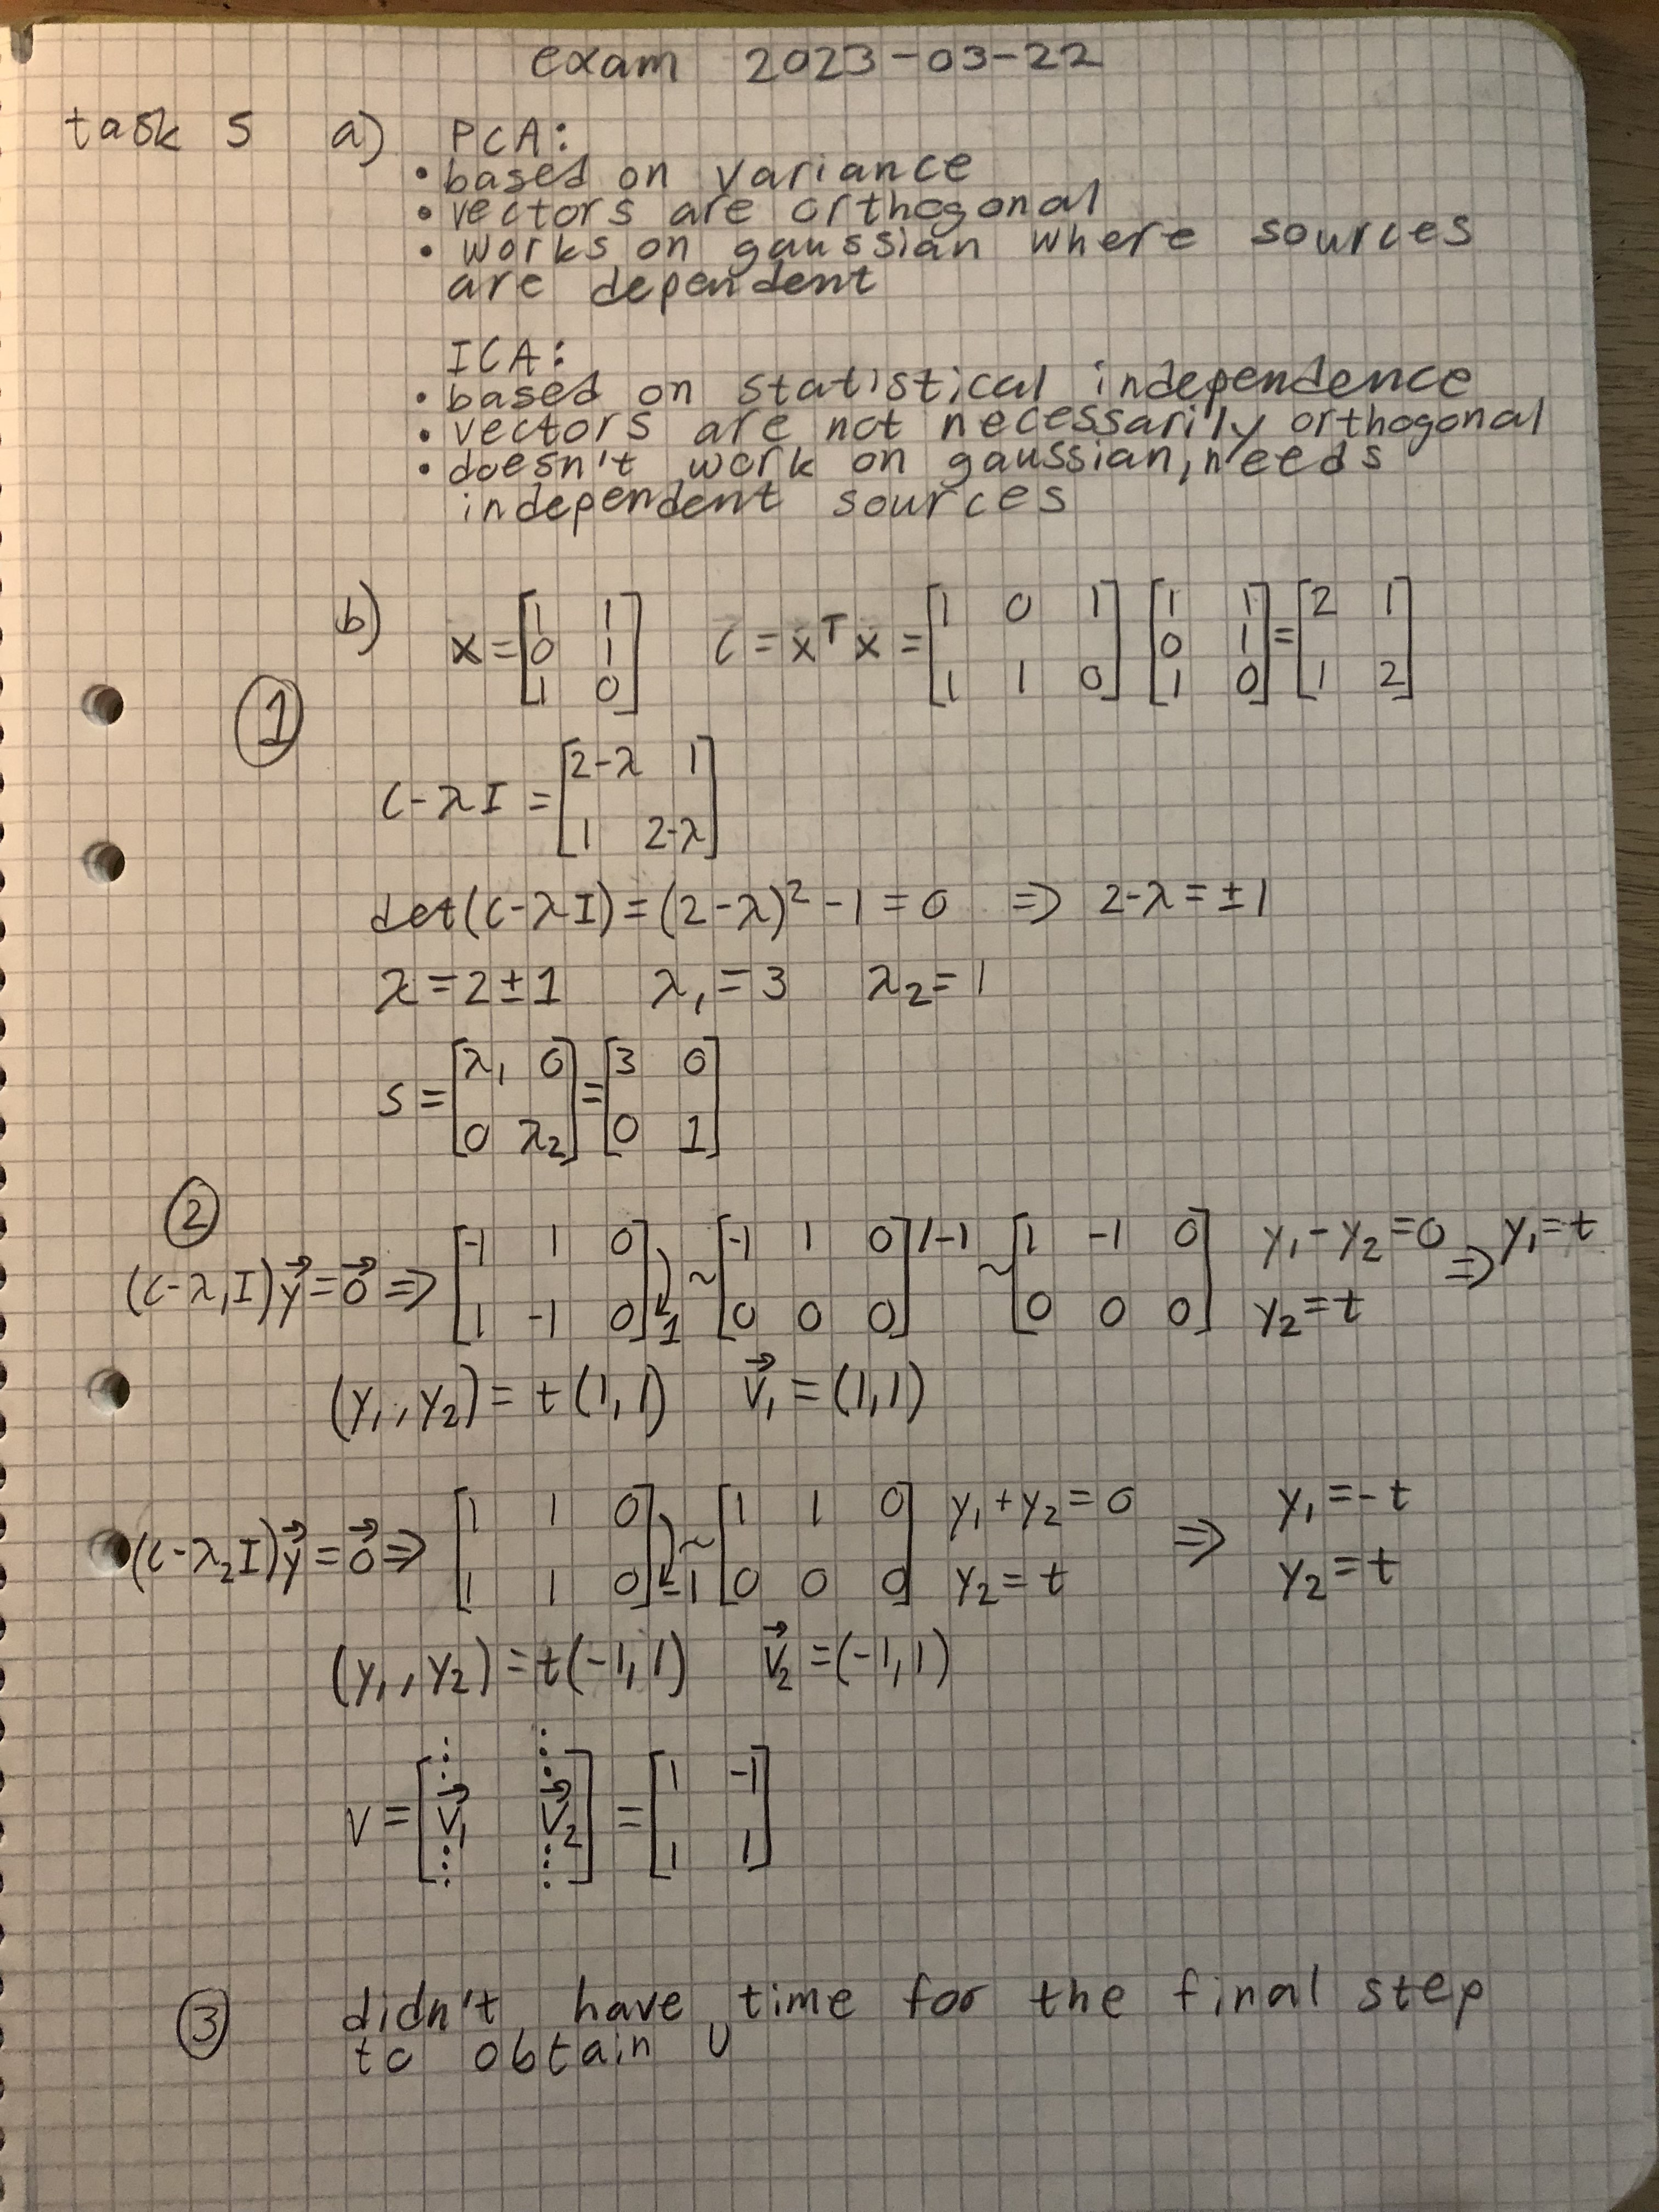 exam 2023-03-22
task 5 a) PCA:
• based on variance
• vectors are orthogonal
• works on gaussian where sources
are dependent
ICA:
• based on statistical independence
• vectors are not necessarily orthogonal
• doesn't work on gaussian, needs
independent sources
b) X = [1 1; 0 1; 1 0] C = X^T X = [1 0 1; 1 1 0] [1 1; 0 1; 1 0] = [2 1; 1 2]
①
C-λI = [2-λ 1; 1 2-λ]
det(C-λI) = (2-λ)² - 1 = 0 => 2-λ = ±1
λ = 2 ± 1 λ₁ = 3 λ₂ = 1
S = [λ₁ 0; 0 λ₂] = [3 0; 0 1]
②
(C-λ₁I)y⃗ = 0⃗ => [-1 1 0; 1 -1 0] 1 ~ [-1 1 0; 0 0 0] /-1 ~ [1 -1 0; 0 0 0] y₁ - y₂ = 0 y₂ = t => y₁ = t
(y₁, y₂) = t(1,1) v⃗₁ = (1,1)
(C-λ₂I)y⃗ = 0⃗ => [1 1 0; 1 1 0] -1 ~ [1 1 0; 0 0 0] y₁ + y₂ = 0 y₂ = t => y₁ = -t y₂ = t
(y₁, y₂) = t(-1,1) v⃗₂ = (-1,1)
V = [⋮ ⋮; v⃗₁ v⃗₂; ⋮ ⋮] = [1 -1; 1 1]
③ didn't have time for the final step
to obtain U